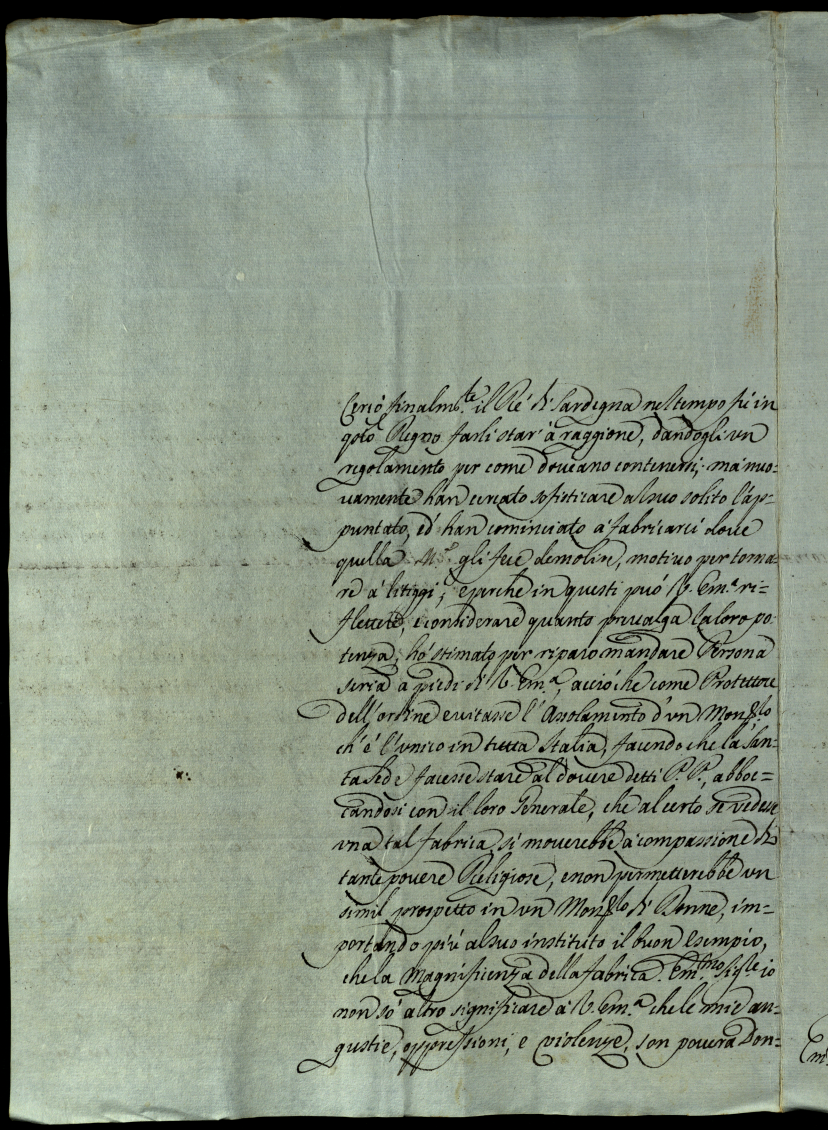 Cercò finalm.te il Rè di Sardegna nel tempo fù in
q.to Regno farli star' à raggione, dandogli un
regolamento per come doveano contenersi; mà nuo-
vamente han cercato sofisticare al suo solito l'ap-
puntato, ed' han cominciato à fabricarci dove
quella M.à gli fece demolire, motivo per torna-
re à litiggi; e perche in questi può V. Em.a ri-
flettere, e considerare quanto prevalga la loro po-
tenza, hò stimato per riparo mandare Persona
seria à piedi di V. Em.a, acciò che come Protettore
dell'ordine evitasse l'Assolamento d'un Mon.rio
ch'è l'unico in tutta Italia, facendo che la San-
ta Sede facesse stare al dovere detti P. P. abboc-
candosi con il loro Generale, che al certo se vedesse
una tal fabrica, si moverebbe à compassione di
tante povere Religiose, e non permetterebbe un
simil prospetto in un Mon.rio di Donne, im-
portando più al suo instituto il buon Esempio,
che la Magnificenza della fabrica. Em.mo Sig.re io
non sò altro significare à V. Em.a che le mie an-
gustie, oppressioni, e violenze, son povera Don-
Em.